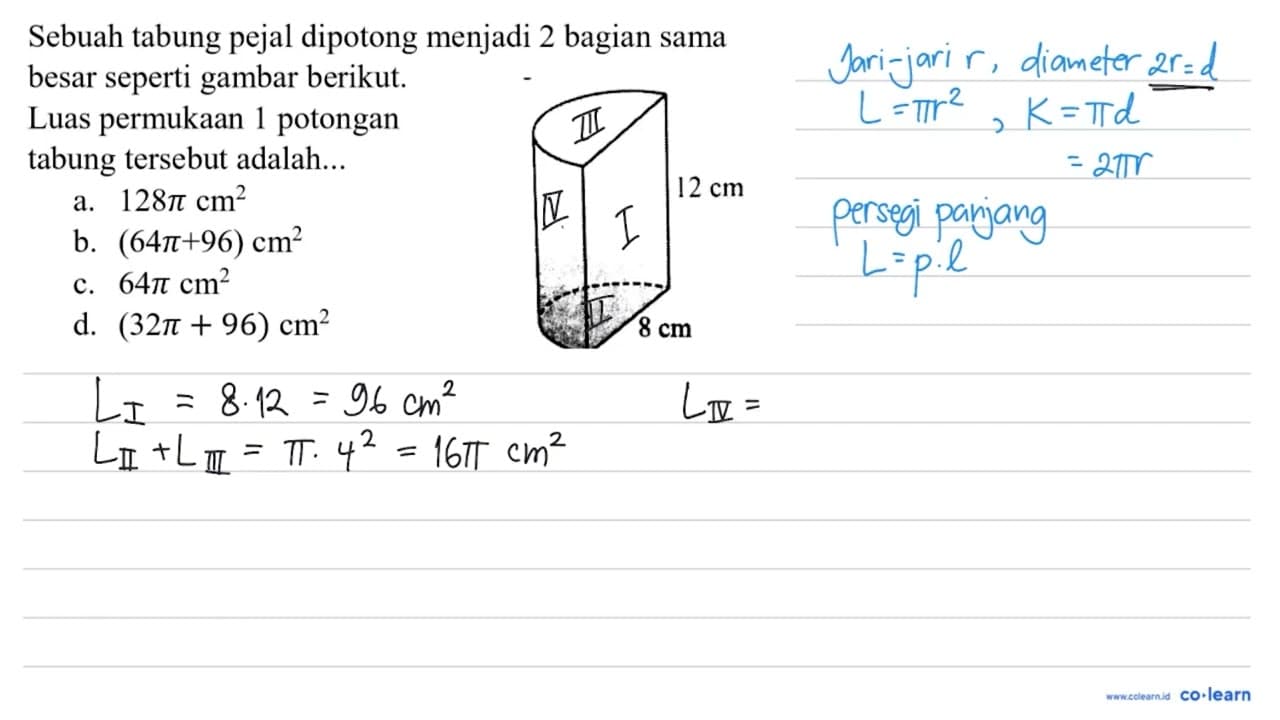 Sebuah tabung pejal dipotong menjadi 2 bagian sama
besar seperti gambar berikut.
Luas permukaan 1 potongan
tabung tersebut adalah...
a. 128π cm²
b. (64π+96) cm²
c. 64π cm²
d. (32π + 96) cm²
III
IV
I
II
12 cm
8 cm
Jari-jari r, diameter 2r=d
L=πr², K=πd
=2πr
persegi panjang
L=p.l
L_I = 8.12 = 96 cm²
L_II + L_III = π. 4² = 16π cm²
L_IV =
www.colearn.id co•learn